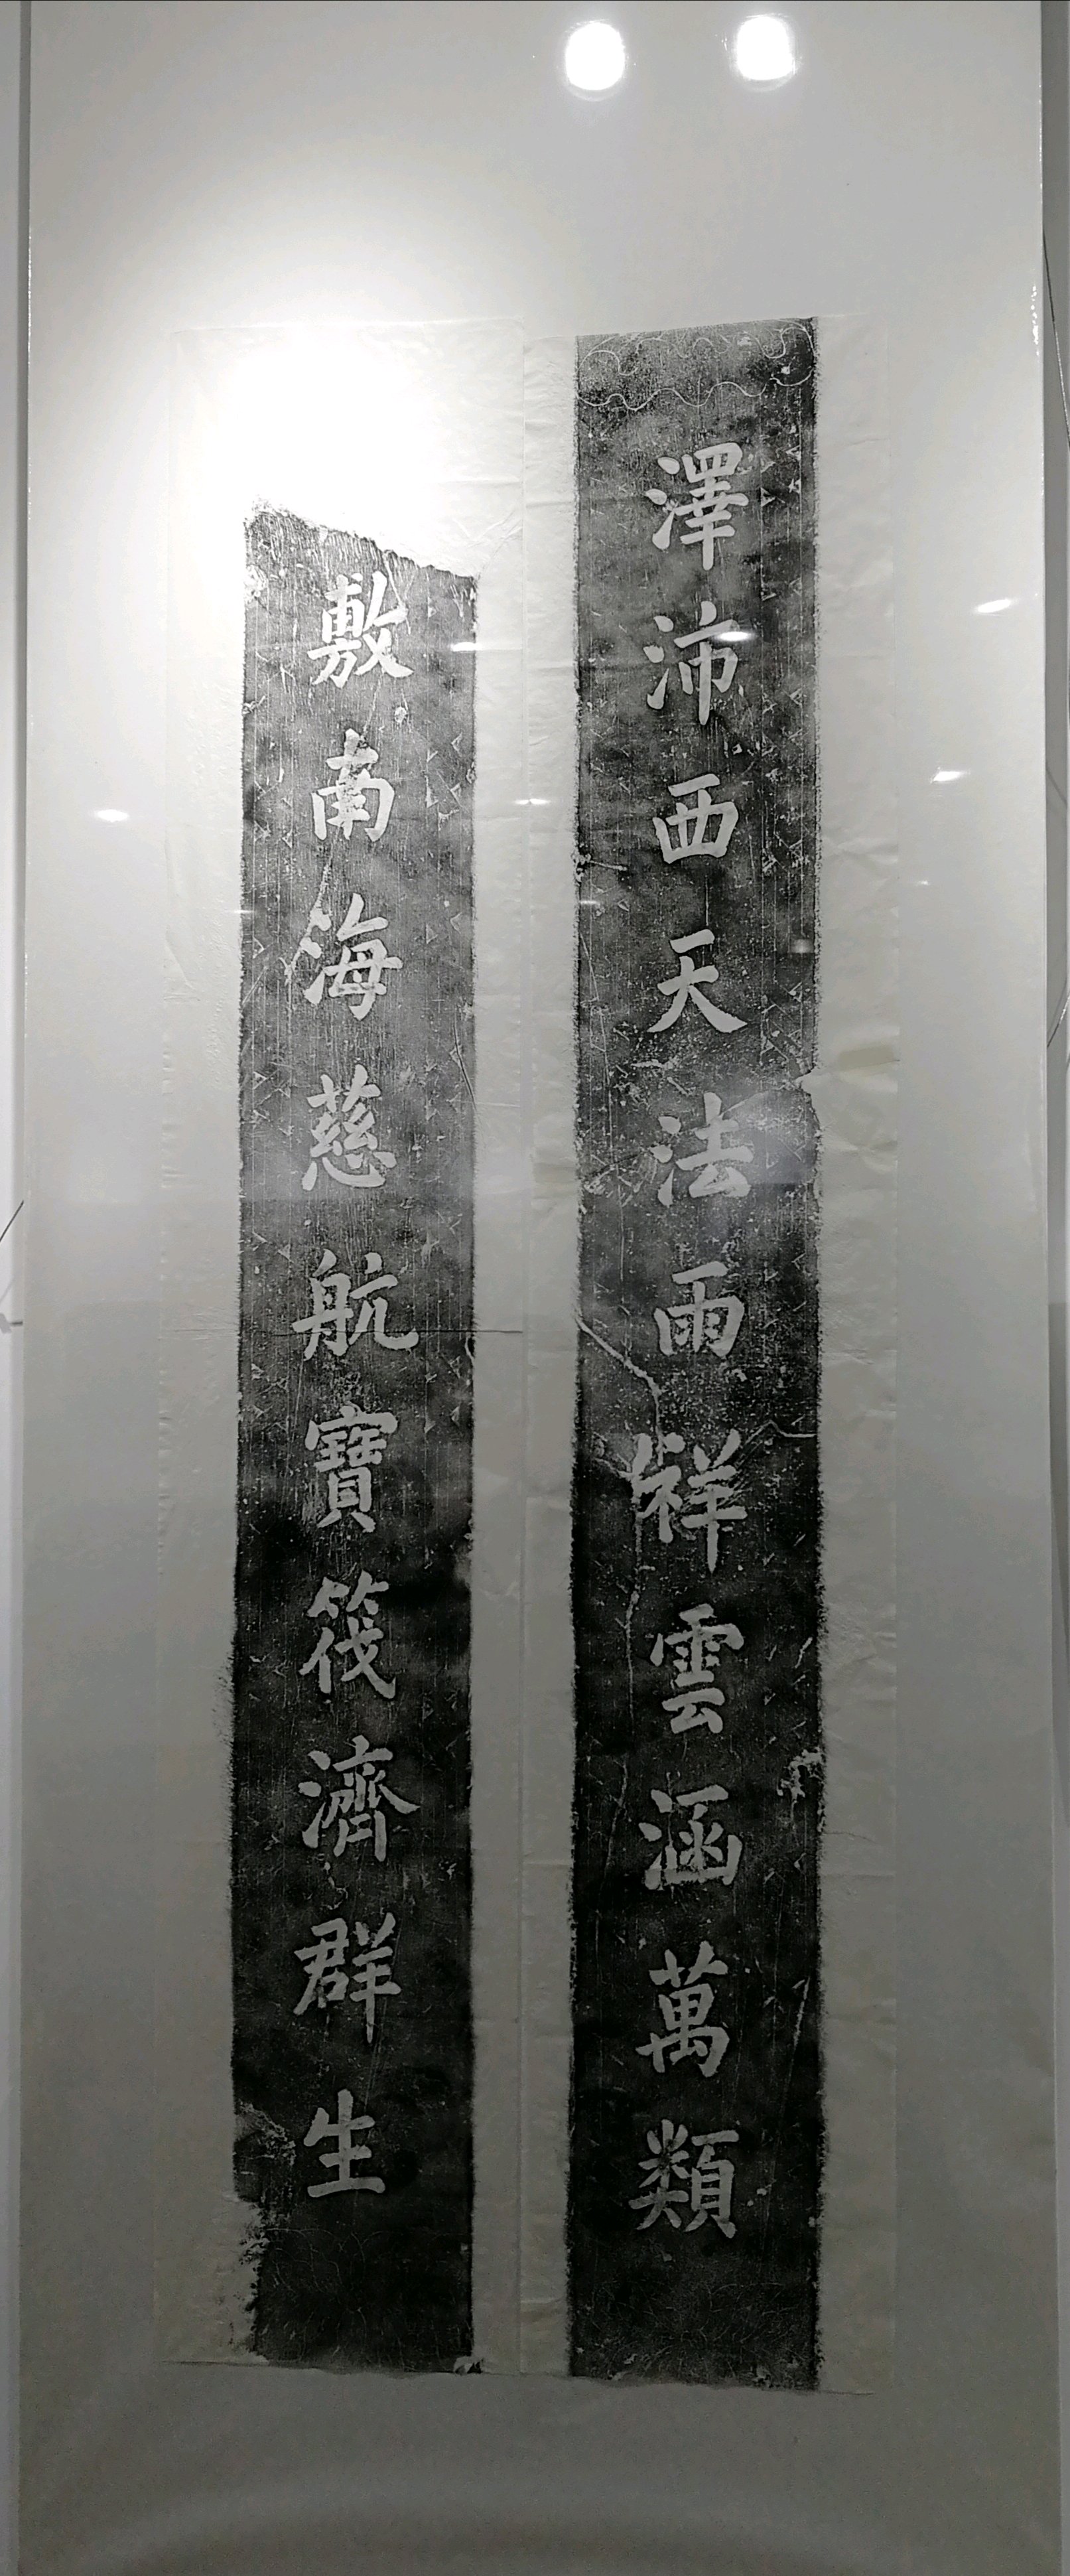 澤沛西天法雨祥雲涵萬類
敷南海慈航寶筏濟群生